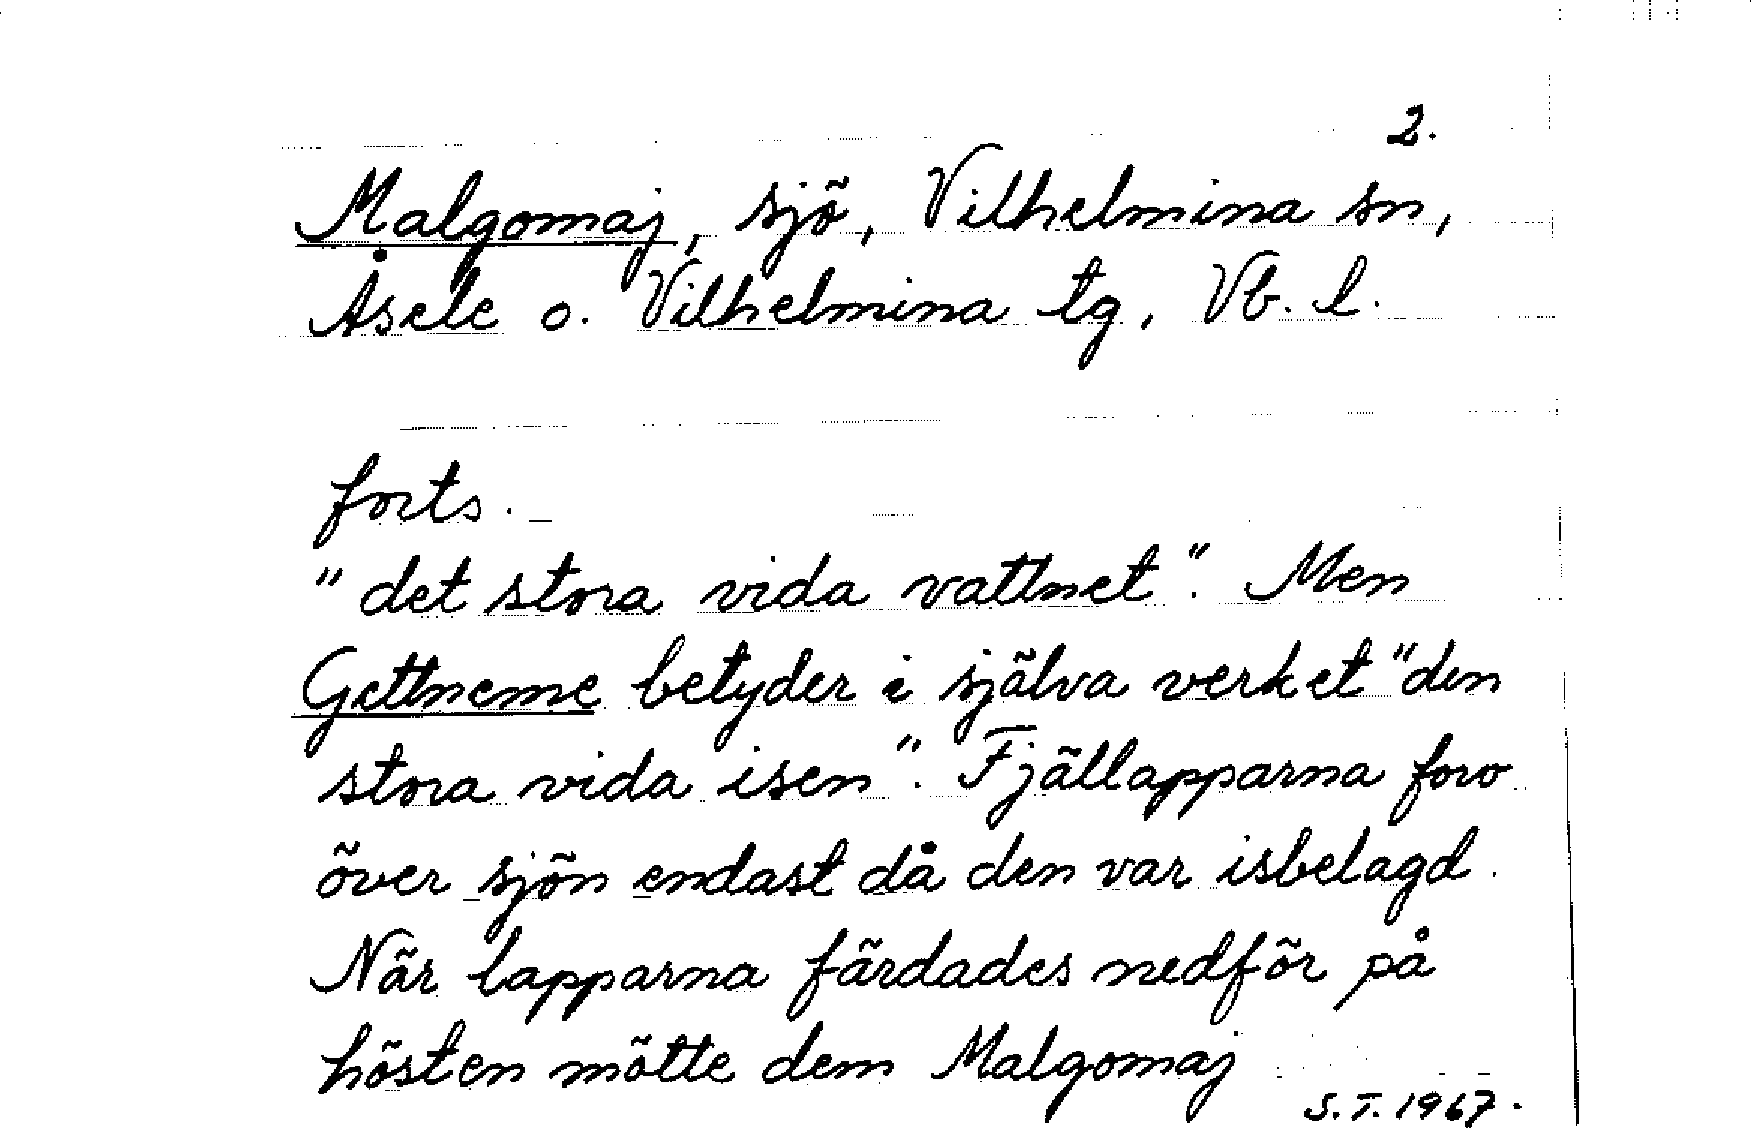 2.
Malgomaj, sjö, Vilhelmina sn,
Åsele o. Vilhelmina tg, Vb. l.
forts.
"det stora vida vattnet". Men
Gettneme betyder i själva verket "den
stora vida isen". Fjällapparna foro
över sjön endast då den var isbelagd.
När lapparna färdades nedför på
hösten mötte dem Malgomaj
S.T. 1967.